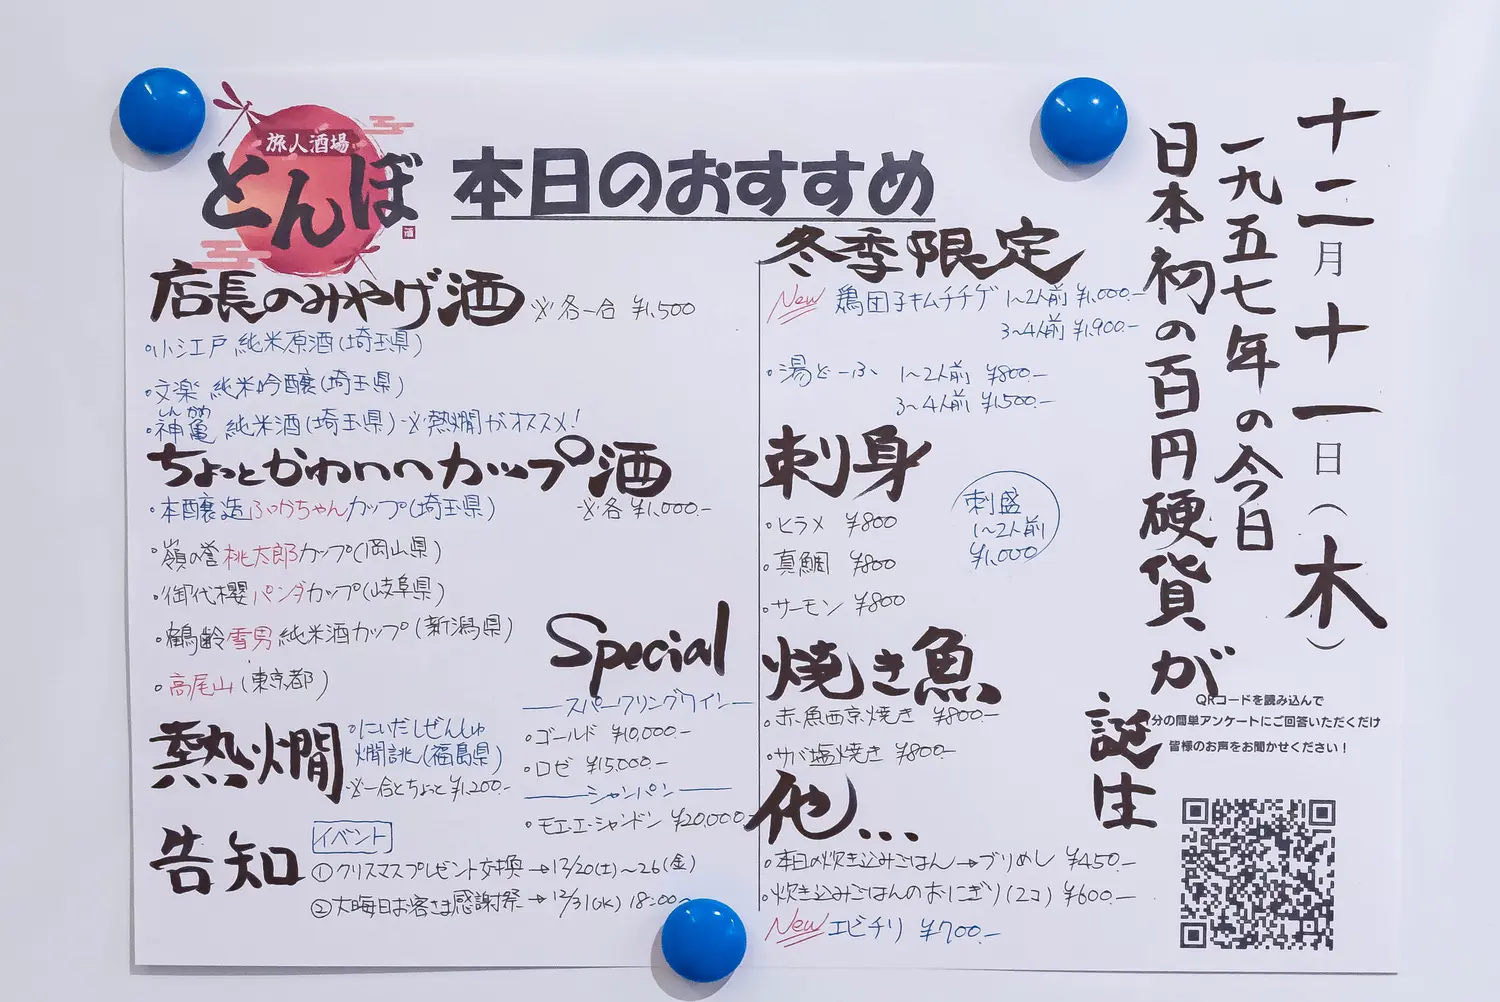 旅人酒場
とんぼ
本日のおすすめ
店長のみやげ酒 ※各一合 ¥1,500
・小江戸 純米原酒(埼玉県)
・文楽 純米吟醸(埼玉県)
しんかめ
・神亀 純米酒(埼玉県)※熱燗がオススメ!
ちょっとかわいいカップ酒
※各 ¥1,000.-
・本醸造ふっかちゃんカップ(埼玉県)
・嶺の誉桃太郎カップ(岡山県)
・御代櫻パンダカップ(岐阜県)
・鶴齢雪男純米酒カップ(新潟県)
・高尾山(東京都)
熱燗
・にいだしぜんしゅ
燗誂(福島県)
※一合とちょっと ¥1,200.-
Special
スパークリングワイン
・ゴールド ¥10,000.-
・ロゼ ¥15,000.-
シャンパン
・モエ・エ・シャンドン ¥20,000.-
告知
イベント
①クリスマスプレゼント交換→12/20(土)~26(金)
②大晦日お客さま感謝祭→12/31(水) 18:00~
冬季限定
New 鶏団子キムチチゲ 1~2人前 ¥1,000.-
3~4人前 ¥1,900.-
・湯どーふ 1~2人前 ¥800.-
3~4人前 ¥1,500.-
刺身
・ヒラメ ¥800
・真鯛 ¥800
・サーモン ¥800
刺盛
1~2人前
¥1,000
焼き魚
・赤魚西京焼き ¥800.-
・サバ塩焼き ¥800.-
他...
・本日の炊き込みごはん→ブリめし ¥450.-
・炊き込みごはんのおにぎり(2コ) ¥600.-
New エビチリ ¥700.-
十二月十一日(木)
一九五七年の今日
日本初の百円硬貨が
誕生
QRコードを読み込んで
1分の簡単アンケートにご回答いただくだけ
皆様のお声をお聞かせください!